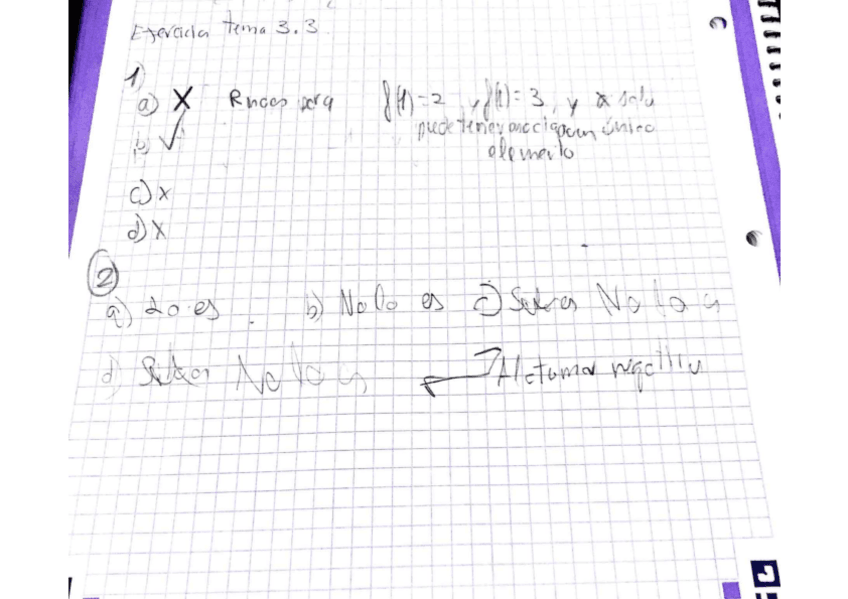 Ejercicios tema 3.3
1)
a) X f(1)=2, y f(1)=3, y x solo
puede tener un único
b) ✓ elemento
c) x
d) x
2
a) Lo es b) No lo es c) No lo es
d) No lo es Al tomar negativo